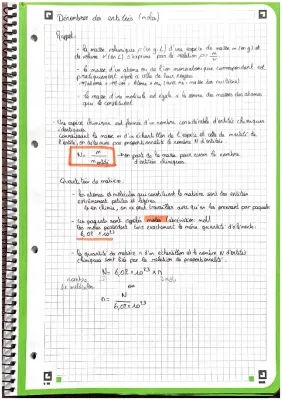 Dénombrer des entités (moles)
Rappel:
- la masse volumique ρ (en g.L) d'une espèce de masse m (en g) et
de volume V (en L) s'exprime par la relation ρ = m/V
- la masse d'un atome ou de l'ion monoatomique correspondant est
pratiquement égale à celle de leur noyau
- la masse d'une molécule est égale à la somme des masses des atomes
qui la constituent.
Une espèce chimique est formée d'un nombre considérable d'entités chimiques
identiques.
Connaissant la masse m d'un échantillon de l'espèce et celle de m entité de
l'entité, on détermine par proportionnalité le nombre N d'entités
N = m / m entité → on parle de la masse pour avoir le nombre
d'entités chimiques.
Quantité de matière:
- les atomes et molécules qui constituent la matière sont des entités
extrêmement petites et légères.
en chimie, on ne peut travailler avec qu'en les prenant par paquets
- Les paquets sont appelés moles (abréviation mol)
Les moles possèdent tous exactement la même quantité d'éléments:
6,02 × 10^23
- la quantité de matière n d'un échantillon et le nombre N d'entités
chimiques sont liés par la relation de proportionnalité:
N = 6,02 × 10^23 × n
nombre
de molécules
mol
ou
n = N / 6,02 × 10^23